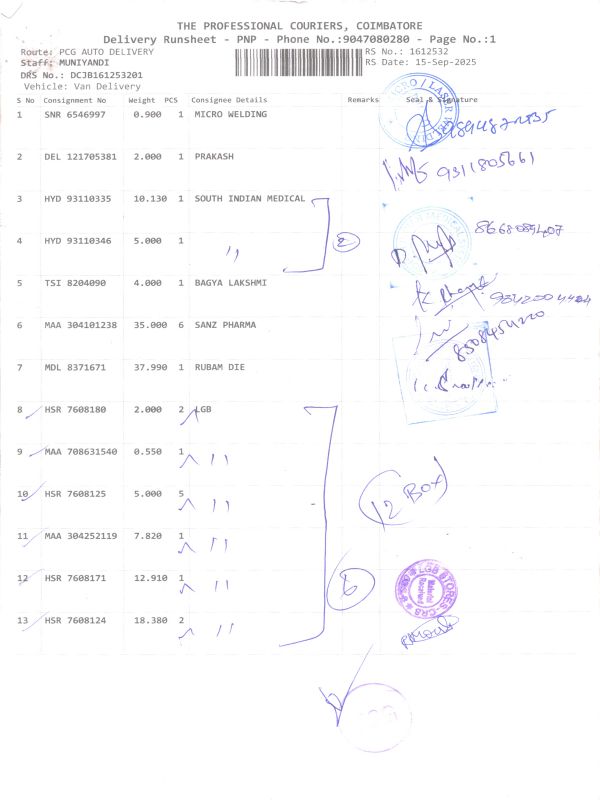 THE PROFESSIONAL COURIERS, COIMBATORE
Delivery Runsheet - PNP - Phone No.:9047080280 - Page No.:1
Route: PCG AUTO DELIVERY RS No.: 1612532
Staff: MUNIYANDI RS Date: 15-Sep-2025
DRS No.: DCJB161253201
Vehicle: Van Delivery
S No Consignment No Weight PCS Consignee Details Remarks Seal & Signature
1 SNR 6546997 0.900 1 MICRO WELDING
2 DEL 121705381 2.000 1 PRAKASH 9311805661
3 HYD 93110335 10.130 1 SOUTH INDIAN MEDICAL
2
4 HYD 93110346 5.000 1 〃
5 TSI 8204090 4.000 1 BAGYA LAKSHMI
6 MAA 304101238 35.000 6 SANZ PHARMA
7 MDL 8371671 37.990 1 RUBAM DIE
8 HSR 7608180 2.000 2 LGB
9 MAA 708631540 0.550 1 〃
10 HSR 7608125 5.000 5 〃
12 BOX
11 MAA 304252119 7.820 1 〃
12 HSR 7608171 12.910 1 〃
6
LGB STORES-CRS
Material
Received
13 HSR 7608124 18.380 2 〃